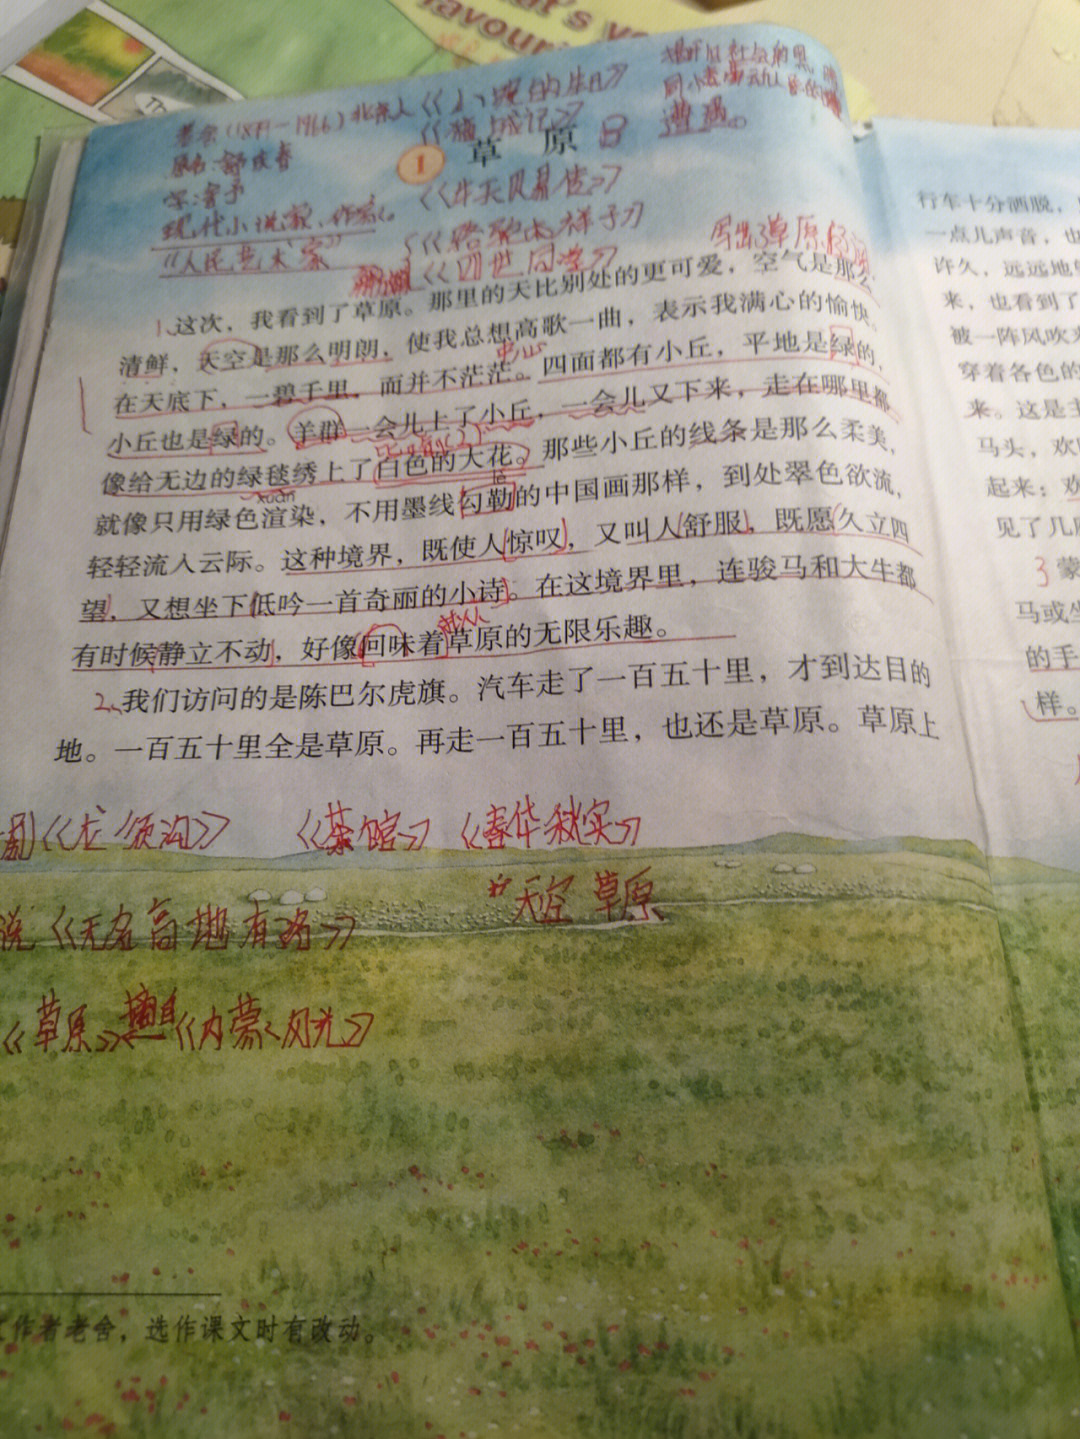 favouri
老舍(1899-1966)北京人
原名:舒庆春
字:舍予
现代小说家、作家。
《人民艺术家》
《小坡的生日》
《猫城记》
《牛天赐传》
《骆驼祥子》
《四世同堂》
遭遇。
1 草原
1、这次，我看到了草原。那里的天比别处的更可爱，空气是那么
清鲜，天空是那么明朗，使我总想高歌一曲，表示我满心的愉快。
在天底下，一碧千里，而并不茫茫。四面都有小丘，平地是绿的，
小丘也是绿的。羊群一会儿上了小丘，一会儿又下来，走在哪里都
像给无边的绿毯绣上了白色的大花。那些小丘的线条是那么柔美，
xuàn
就像只用绿色渲染，不用墨线勾勒的中国画那样，到处翠色欲流，
轻轻流入云际。这种境界，既使人惊叹，又叫人舒服，既愿久立四
望，又想坐下低吟一首奇丽的小诗。在这境界里，连骏马和大牛都
有时候静立不动，好像回味着草原的无限乐趣。
2、我们访问的是陈巴尔虎旗。汽车走了一百五十里，才到达目的
地。一百五十里全是草原。再走一百五十里，也还是草原。草原上
剧《龙须沟》 《茶馆》 《春华秋实》
天空 草原
说《无名高地有名》
《草原》摘自《内蒙风光》
作者老舍，选作课文时有改动。
行车十分洒脱，
一点儿声音，也
许久，远远地
来，也看到了
被一阵风吹来
穿着各色的
来。这是主
马头，欢
起来：欢
见了几
3 蒙
马或坐
的手
样。